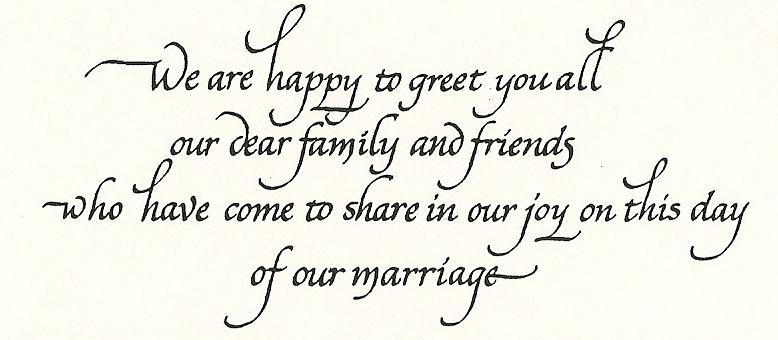 We are happy to greet you all
our dear family and friends
who have come to share in our joy on this day
of our marriage